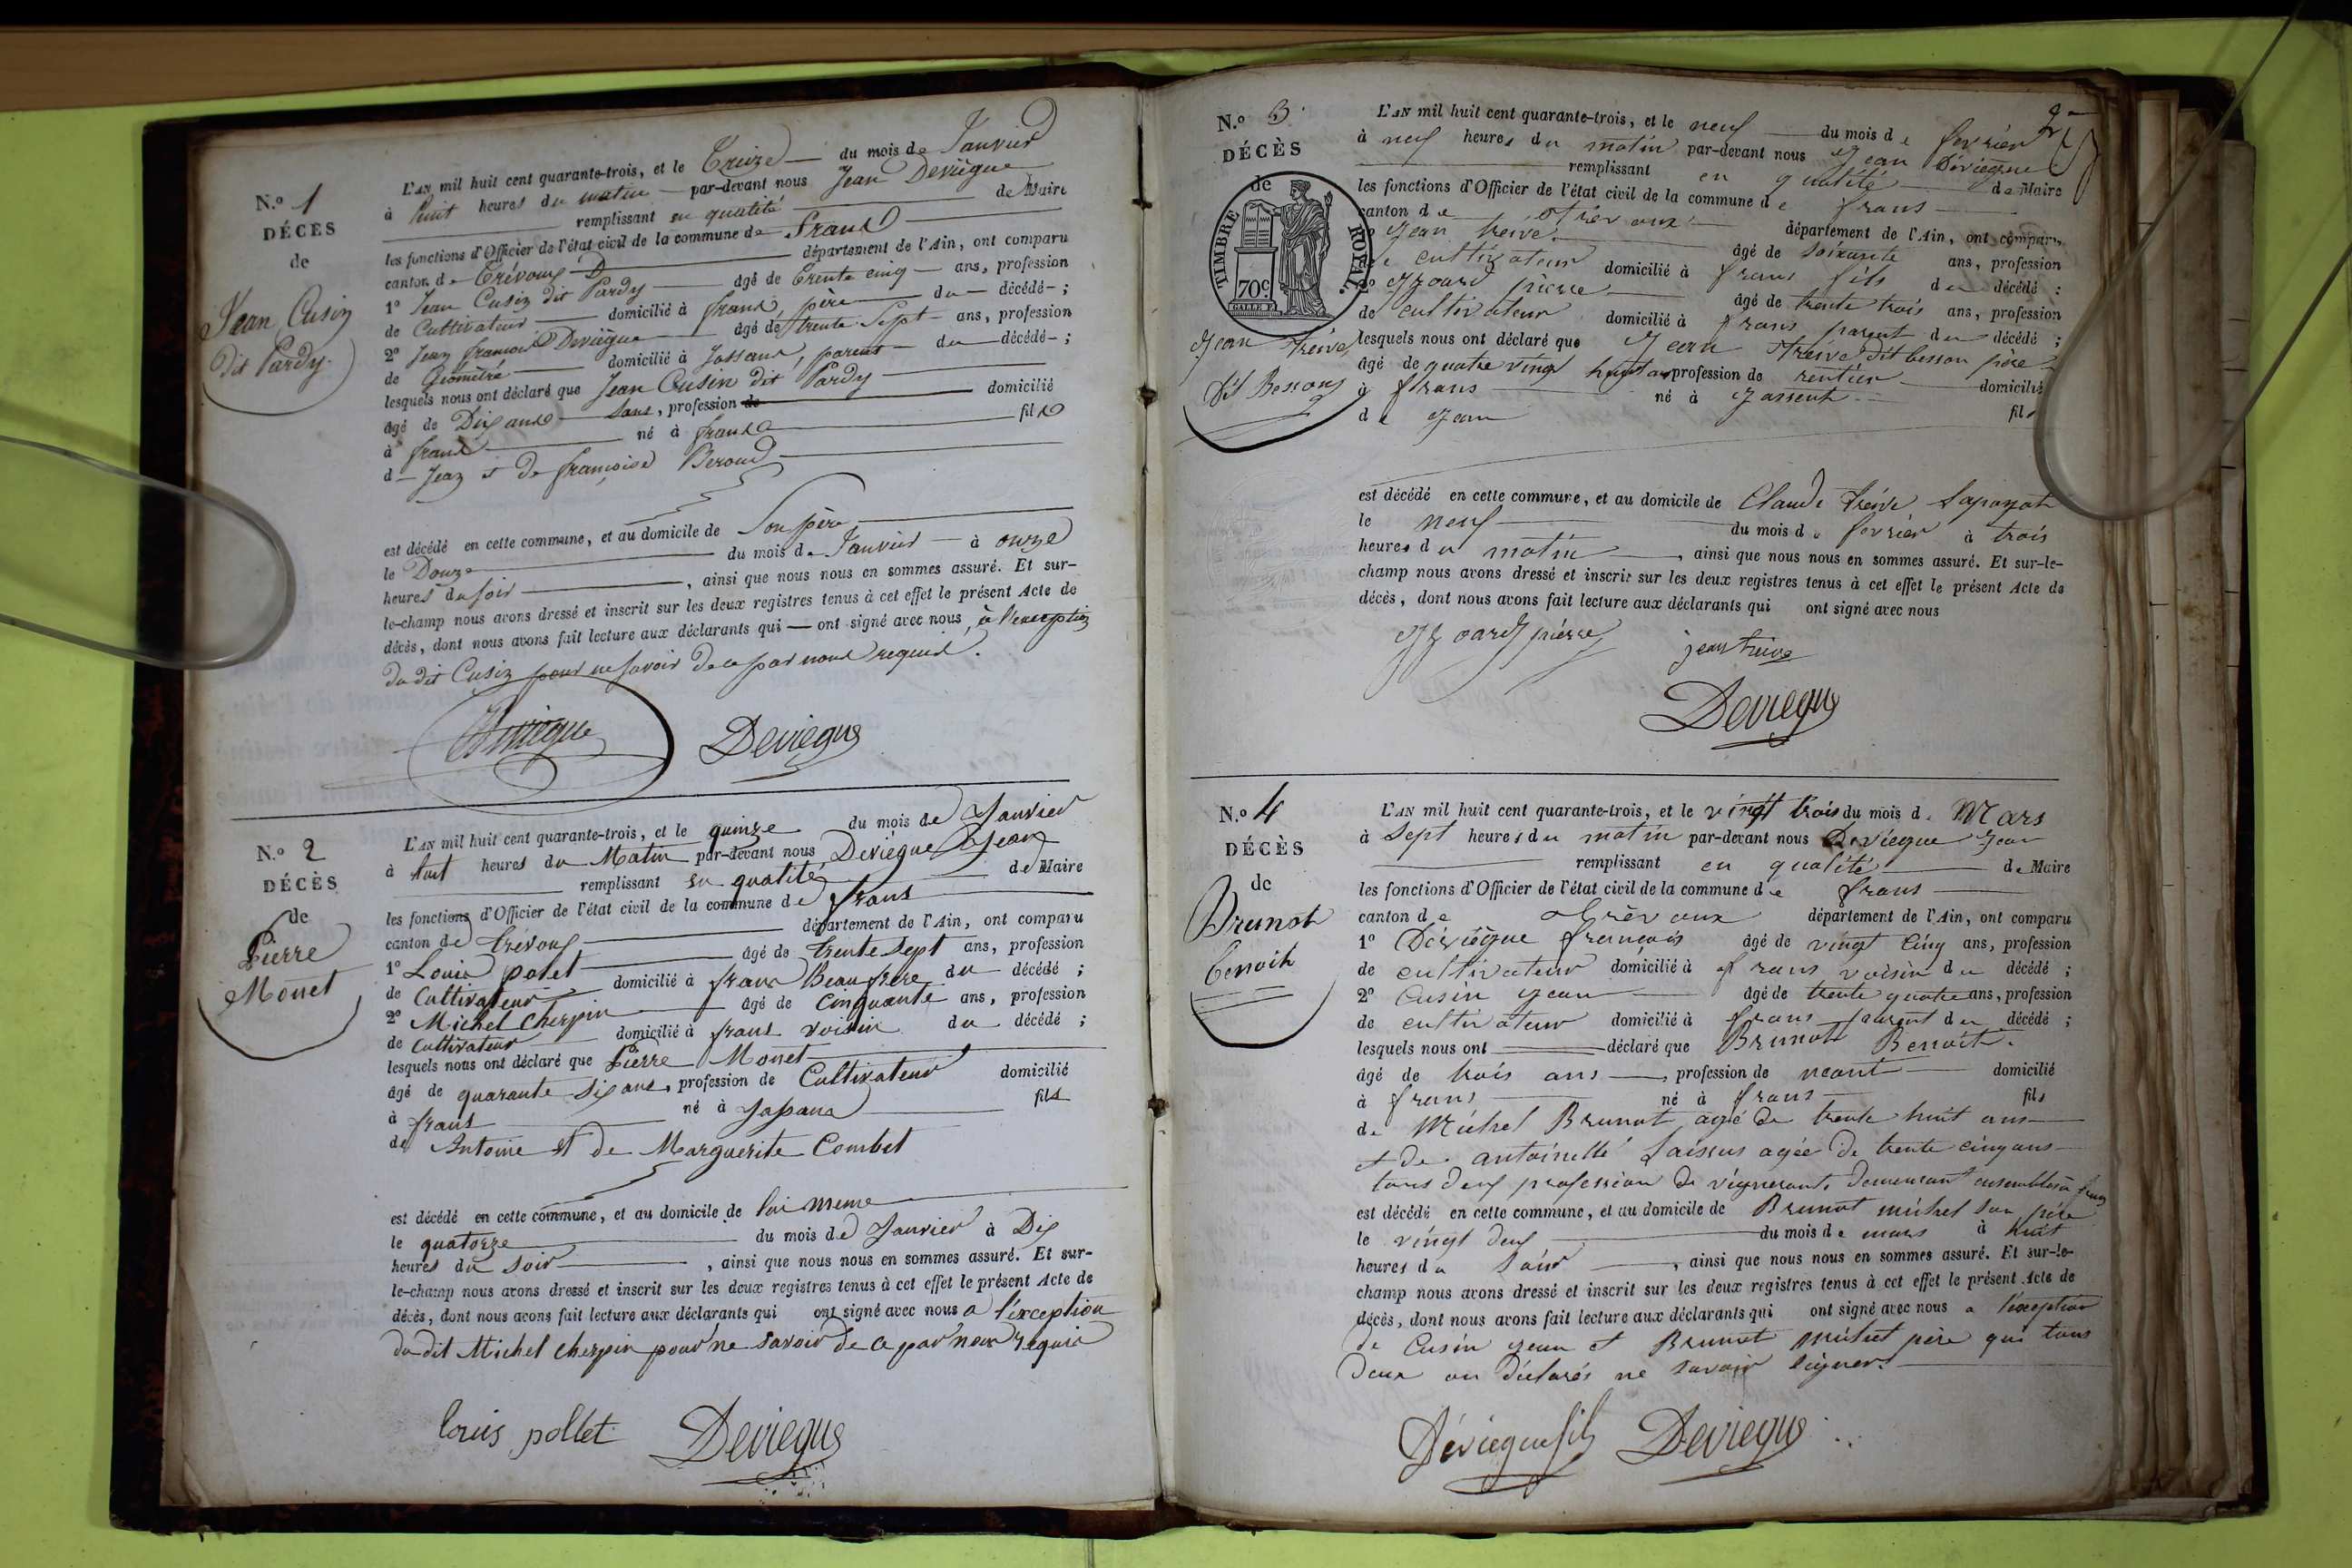 N.º 1
DÉCÈS
de
Jean Cusin
dit Pardy.
L'AN mil huit cent quarante-trois, et le Treize du mois de Janvier
à huit heures du matin par-devant nous Jean Deviègue
remplissant en qualité de Maire
les fonctions d'Officier de l'état civil de la commune de frans
canton de Trévoux département de l'Ain, ont comparu
1º Jean Cusin dit Pardy âgé de trente cinq ans, profession
de Cultivateur domicilié à frans, père du décédé ;
2º Jean françois Deviègue âgé de trente Sept ans, profession
de Géomètre domicilié à Jassans, parent du décédé ;
lesquels nous ont déclaré que Jean Cusin dit Pardy
âgé de Dix ans sans, profession de domicilié
à frans né à frans fils
d Jean et de françoise Beroud
est décédé en cette commune, et au domicile de Son père
le Douze du mois de Janvier à onze
heures du soir, ainsi que nous nous en sommes assuré. Et sur-
le-champ nous avons dressé et inscrit sur les deux registres tenus à cet effet le présent Acte de
décès, dont nous avons fait lecture aux déclarants qui ont signé avec nous, à l'exception
du dit Cusin pour ne savoir de ce par nous requis.
Deviegue Deviegue
N.º 2
DÉCÈS
de
Pierre
Monet
L'AN mil huit cent quarante-trois, et le quinze du mois de Janvier
à huit heures du Matin par-devant nous Deviégue Jean
remplissant en qualité de Maire
les fonctions d'Officier de l'état civil de la commune de frans
canton de trévoux département de l'Ain, ont comparu
1º Louis polet âgé de trente Sept ans, profession
de Cultivateur domicilié à frans Beaufrère du décédé ;
2º Michel Cherpin âgé de Cinquante ans, profession
de Cultivateur domicilié à frans voisin du décédé ;
lesquels nous ont déclaré que Pierre Monet
âgé de quarante dix ans, profession de Cultivateur domicilié
à frans né à Jassans fils
de Antoine et de Marguerite Combet
est décédé en cette commune, et au domicile de lui meme
le quatorze du mois de Janvier à Dix
heures du soir, ainsi que nous nous en sommes assuré. Et sur-
le-champ nous avons dressé et inscrit sur les deux registres tenus à cet effet le présent Acte de
décès, dont nous avons fait lecture aux déclarants qui ont signé avec nous a l'exception
du dit Michel Cherpin pour ne savoir de ce par nous requis
louis pollet Deviegue
2
N.º 3
DÉCÈS
de
TIMBRE ROYAL.
70c
Jean Treive
dit Besson
L'AN mil huit cent quarante-trois, et le neuf du mois de fevrier
à neuf heures du matin par-devant nous Jean Deviegue
remplissant en qualité de Maire
les fonctions d'Officier de l'état civil de la commune de frans
canton de trévoux département de l'Ain, ont comparu
Jean treive âgé de soixante ans, profession
de cultivateur domicilié à frans fils du décédé ;
pierre âgé de trente trois ans, profession
de cultivateur domicilié à frans parent du décédé ;
lesquels nous ont déclaré que Jean treive dit besson père
âgé de quatre vingt huit ans profession de rentier domicilié
à frans né à Jassent fils
de Jean
est décédé en cette commune, et au domicile de Claude treive
le neuf du mois de fevrier à trois
heures du matin, ainsi que nous nous en sommes assuré. Et sur-le-
champ nous avons dressé et inscrit sur les deux registres tenus à cet effet le présent Acte de
décès, dont nous avons fait lecture aux déclarants qui ont signé avec nous
pierre jean treive
Deviegue
N.º 4
DÉCÈS
de
Brunot
benoit
L'AN mil huit cent quarante-trois, et le vingt trois du mois de Mars
à Sept heures du matin par-devant nous Deviegue Jean
remplissant en qualité de Maire
les fonctions d'Officier de l'état civil de la commune de frans
canton de trèvoux département de l'Ain, ont comparu
1º Déviègue francois âgé de vingt Cinq ans, profession
de cultivateur domicilié à frans voisin du décédé ;
2º Cusin Jean âgé de trente quatre ans, profession
de cultivateur domicilié à frans parent du décédé ;
lesquels nous ont déclaré que Brunot Benoit.
âgé de trois ans, profession de neant domicilié
à frans né à frans fils
de Michel Brunot agé de trente huit ans
et de antoinette agée de trente cinq ans
tous deux profession de vignerons demeurant ensembles à frans
est décédé en cette commune, et au domicile de Brunot michel son père
le vingt deux du mois de mars à huit
heures du soir, ainsi que nous nous en sommes assuré. Et sur-le-
champ nous avons dressé et inscrit sur les deux registres tenus à cet effet le présent Acte de
décès, dont nous avons fait lecture aux déclarants qui ont signé avec nous a l'exception
de Cusin Jean et Brunot michel père qui tous
deux on déclarés ne savoir signer.
Déviegue fils Deviegue